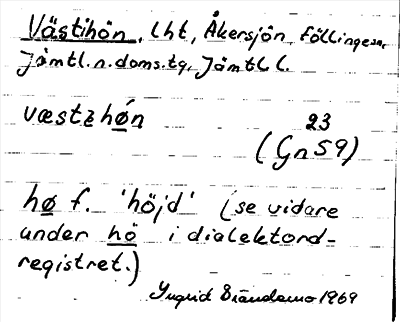 Västihön, lht, Åkersjön, Föllinge sn,
Jämtl. n. doms. tg, Jämtl l.
væstehǿn
23
(Gn 59)
hø f. 'höjd' (se vidare
under hö i dialektord-
registret.)
Ingrid 1969